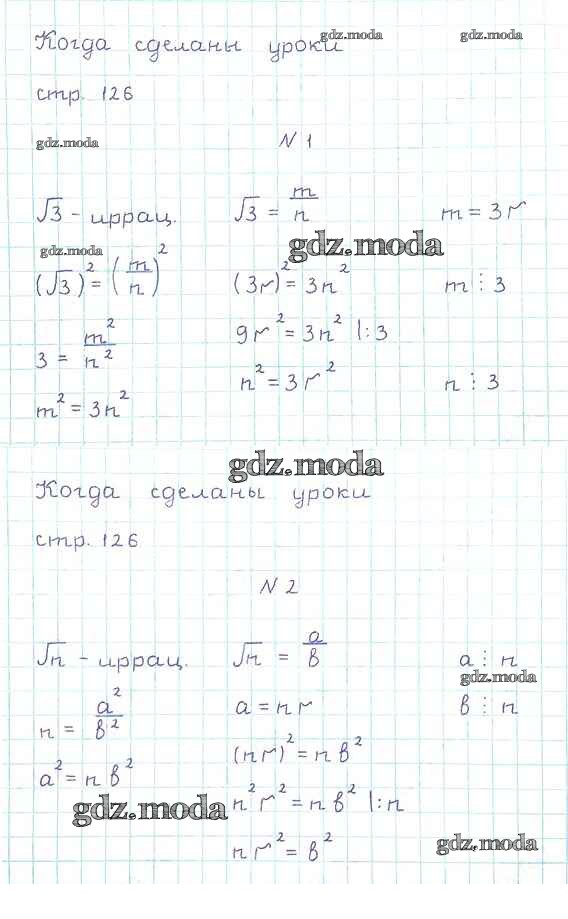 Когда сделаны уроки gdz.moda gdz.moda
стр. 126
gdz.moda N 1
√3 - иррац. √3 = m/n m = 3r
gdz.moda gdz.moda
(√3)² = (m/n)² (3r)² = 3n² m ⋮ 3
3 = m²/n² 9r² = 3n² |:3
m² = 3n² n² = 3r² n ⋮ 3
gdz.moda
Когда сделаны уроки
стр. 126
N 2
√n - иррац. √n = a/b a ⋮ n
gdz.moda
n = a²/b² a = nr b ⋮ n
a² = nb² (nr)² = nb²
gdz.moda n²r² = nb² |:n
nr² = b² gdz.moda